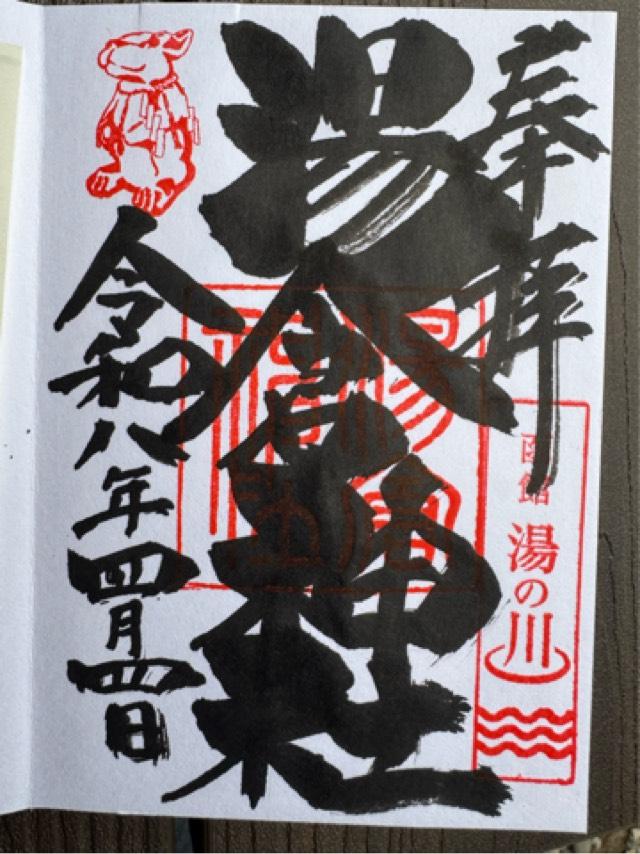 奉拝
函館
湯の川
湯倉神社
湯倉神社
令和八年四月四日